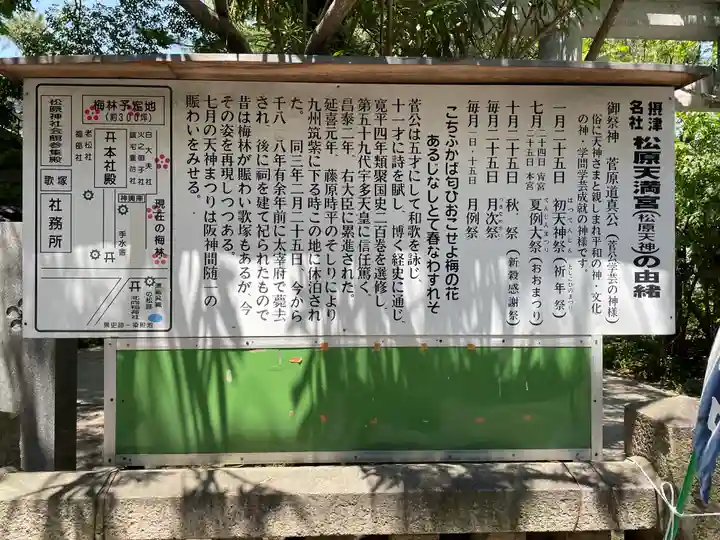 摂津
名社
松原天満宮(松原天神)の由緒
御祭神 菅原道真公(菅公学芸の神様)
俗に天神さまと親しまれ平和の神・文化
の神・学問学会成就の神様です。
一月二十五日 初天神祭(祈年祭)
七月二十四日 宵宮
二十五日 本宮
夏例大祭(おおまつり)
十月二十五日 秋祭(新穀感謝祭)
毎月二十五日 月次祭
毎月一日・十五日 月例祭
こちふかば匂ひおこせよ梅の花
あるじなしとて春なわすれそ
菅公は五才にして和歌を詠じ、
十一才に詩を賦し、博く経史に通じ、
寛平四年類聚国史二百巻を選修し、
第五十九代宇多天皇に信任篤く、
昌泰二年、右大臣に累進された。
延喜元年、藤原時平のそしりにより
九州筑紫に下る時この地に休泊され
た。 同三年二月二十五日、今から
千八十八年有余年前に太宰府で薨去
され、後に祠を建て祀られたもので
昔は梅林が賑わい歌塚もあるが、今
その姿を再現しつつある。
七月の天神まつりは阪神間随一の
賑わいをみせる。
梅林予定地
(約300坪)
松原神社会館参集殿
老松社
福部社
本社殿
白大夫社
火之御子社
歌塚
社務所
神輿庫
手水舎
現在の梅林
の松跡
北向稲荷神社